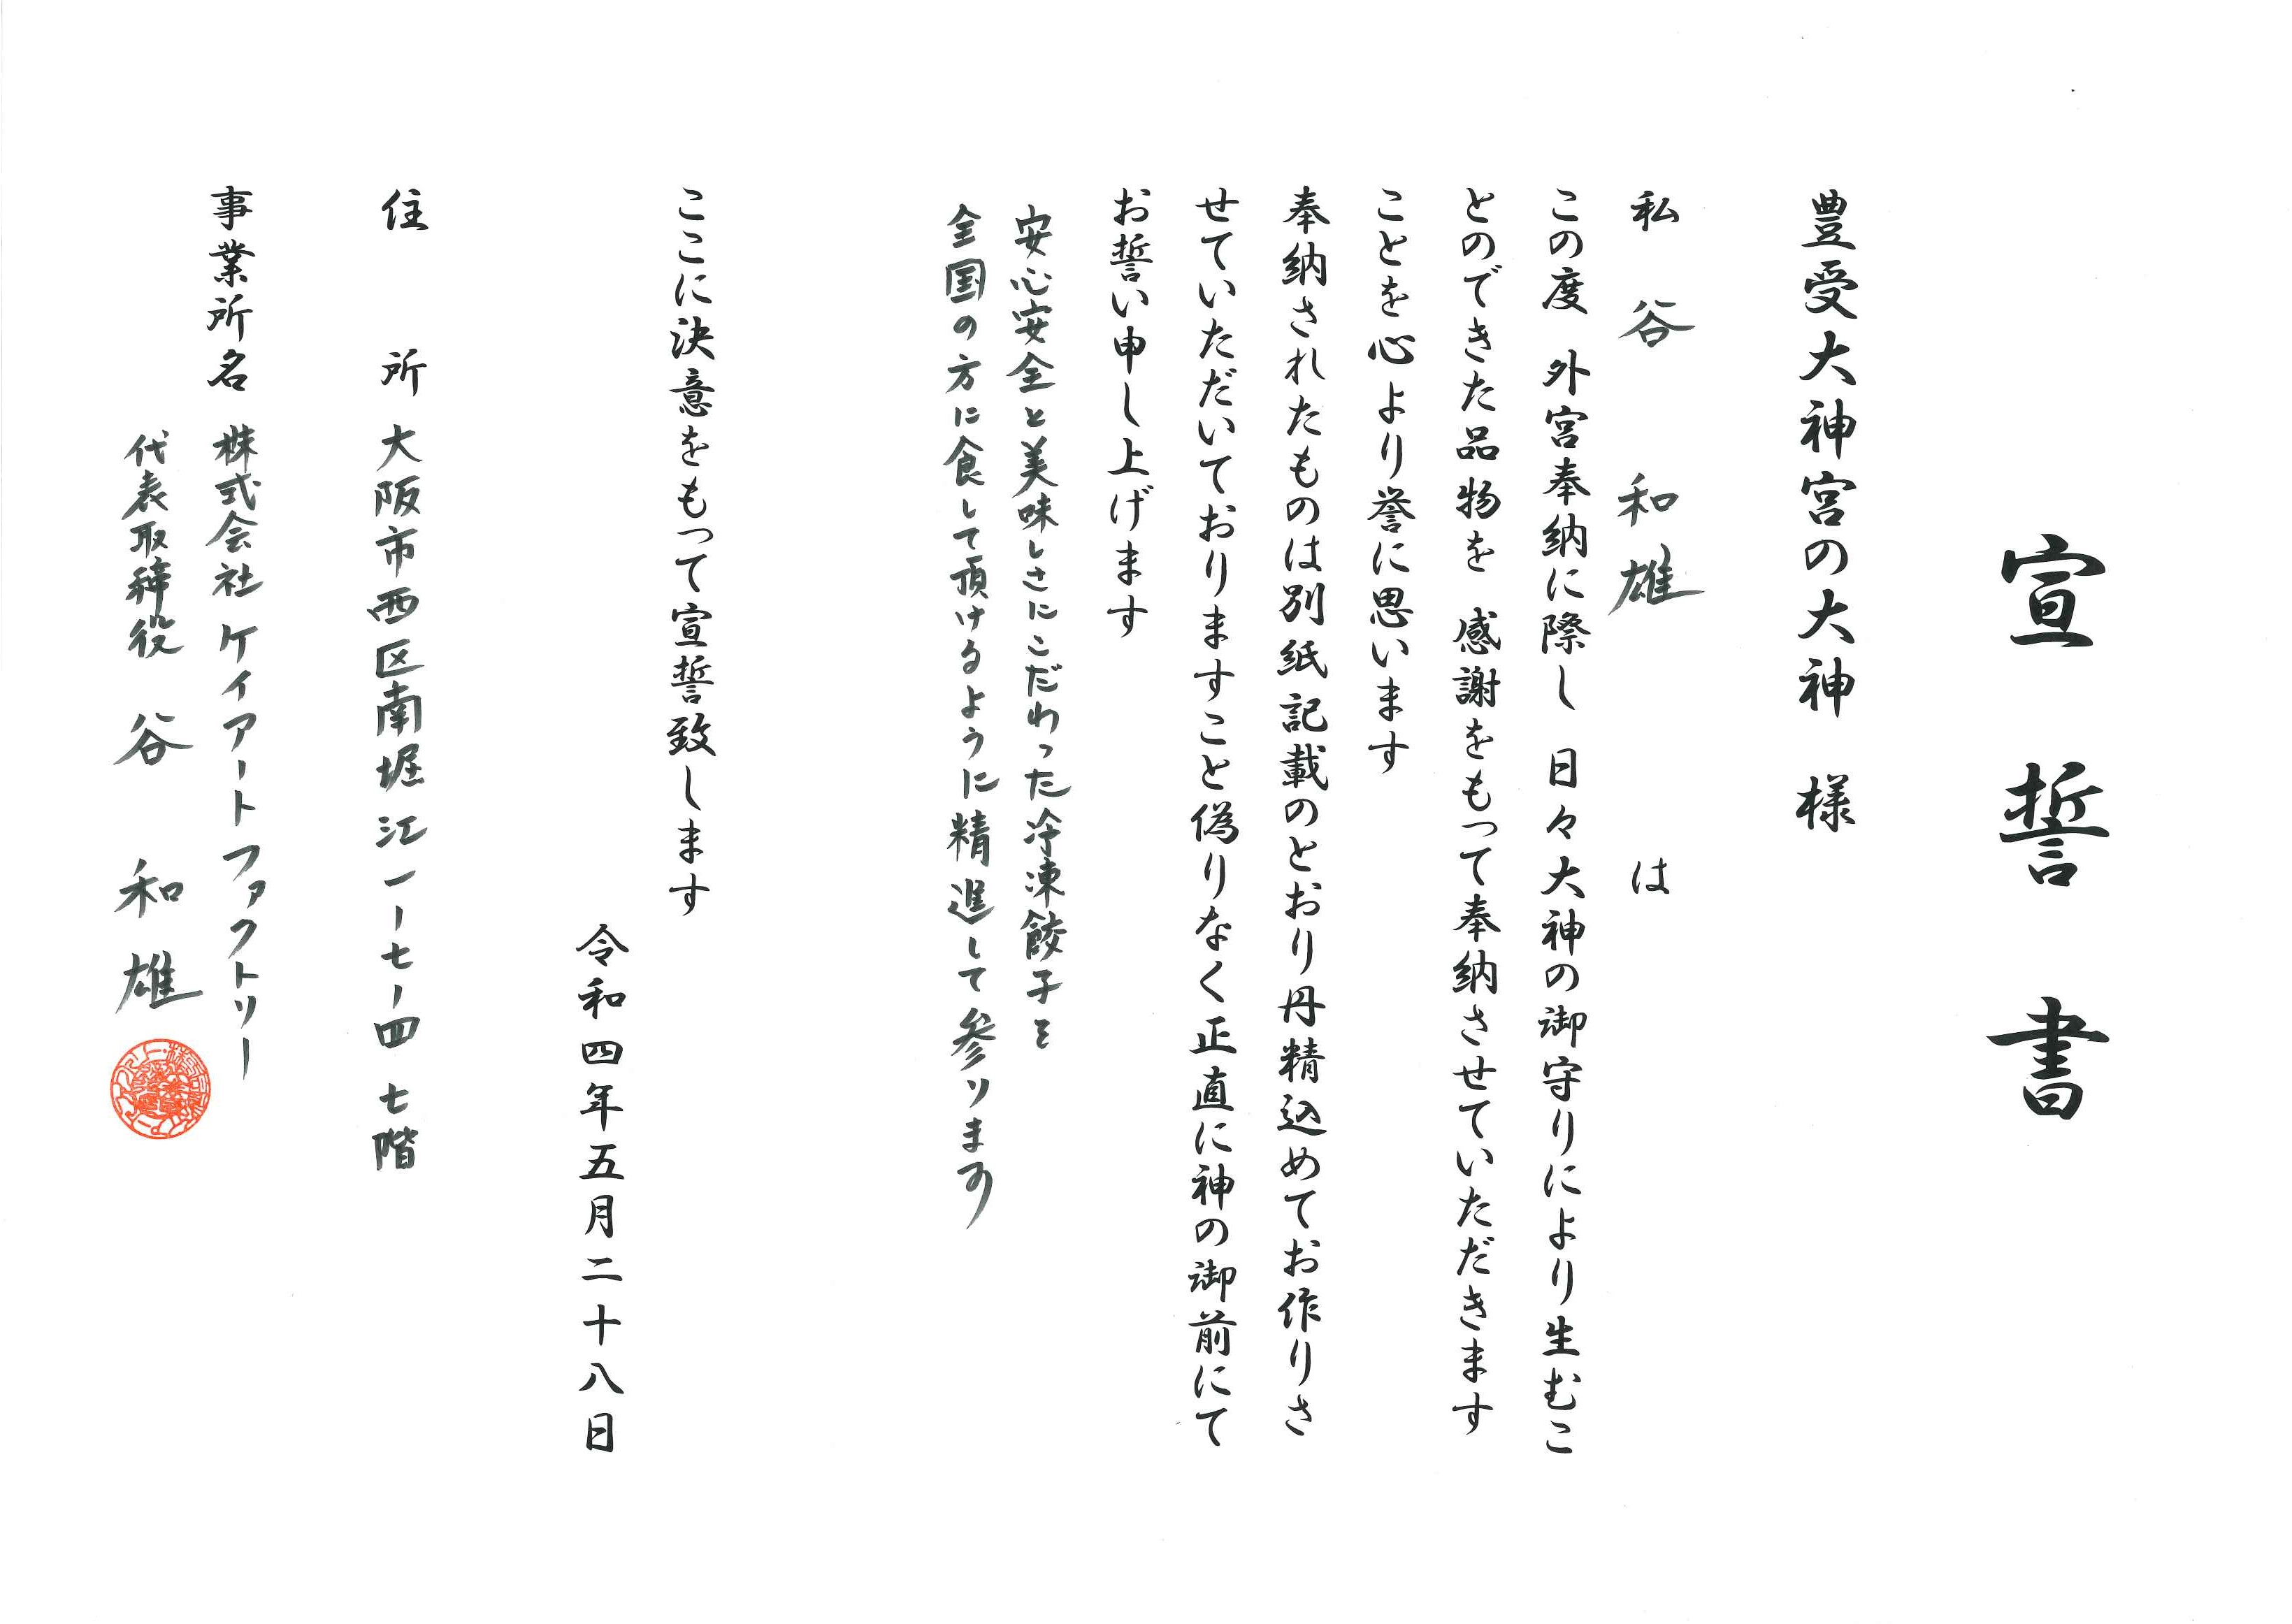 宣誓書
豊受大神宮の大神 様
私 谷 和雄 は
この度 外宮奉納に際し 日々大神の御守りにより生むこ
とのできた品物を 感謝をもって奉納させていただきます
ことを心より誉に思います
奉納されたものは別紙記載のとおり丹精込めてお作りさ
せていただいておりますこと偽りなく正直に神の御前にて
お誓い申し上げます
安心安全と美味しさにこだわった冷凍餃子を
全国の方に食して頂けるように精進して参ります
ここに決意をもって宣誓致します
令和四年五月二十八日
住所 大阪市西区南堀江一ー七ー四 七階
事業所名 株式会社ケイアートファクトリー
代表取締役 谷 和雄